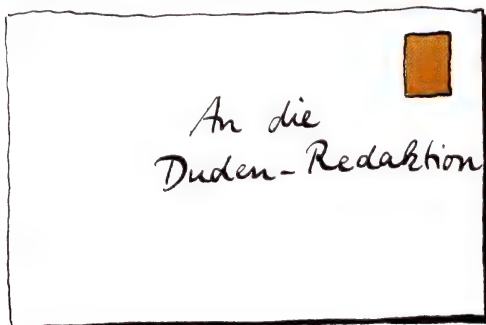 An die
Duden-Redaktion